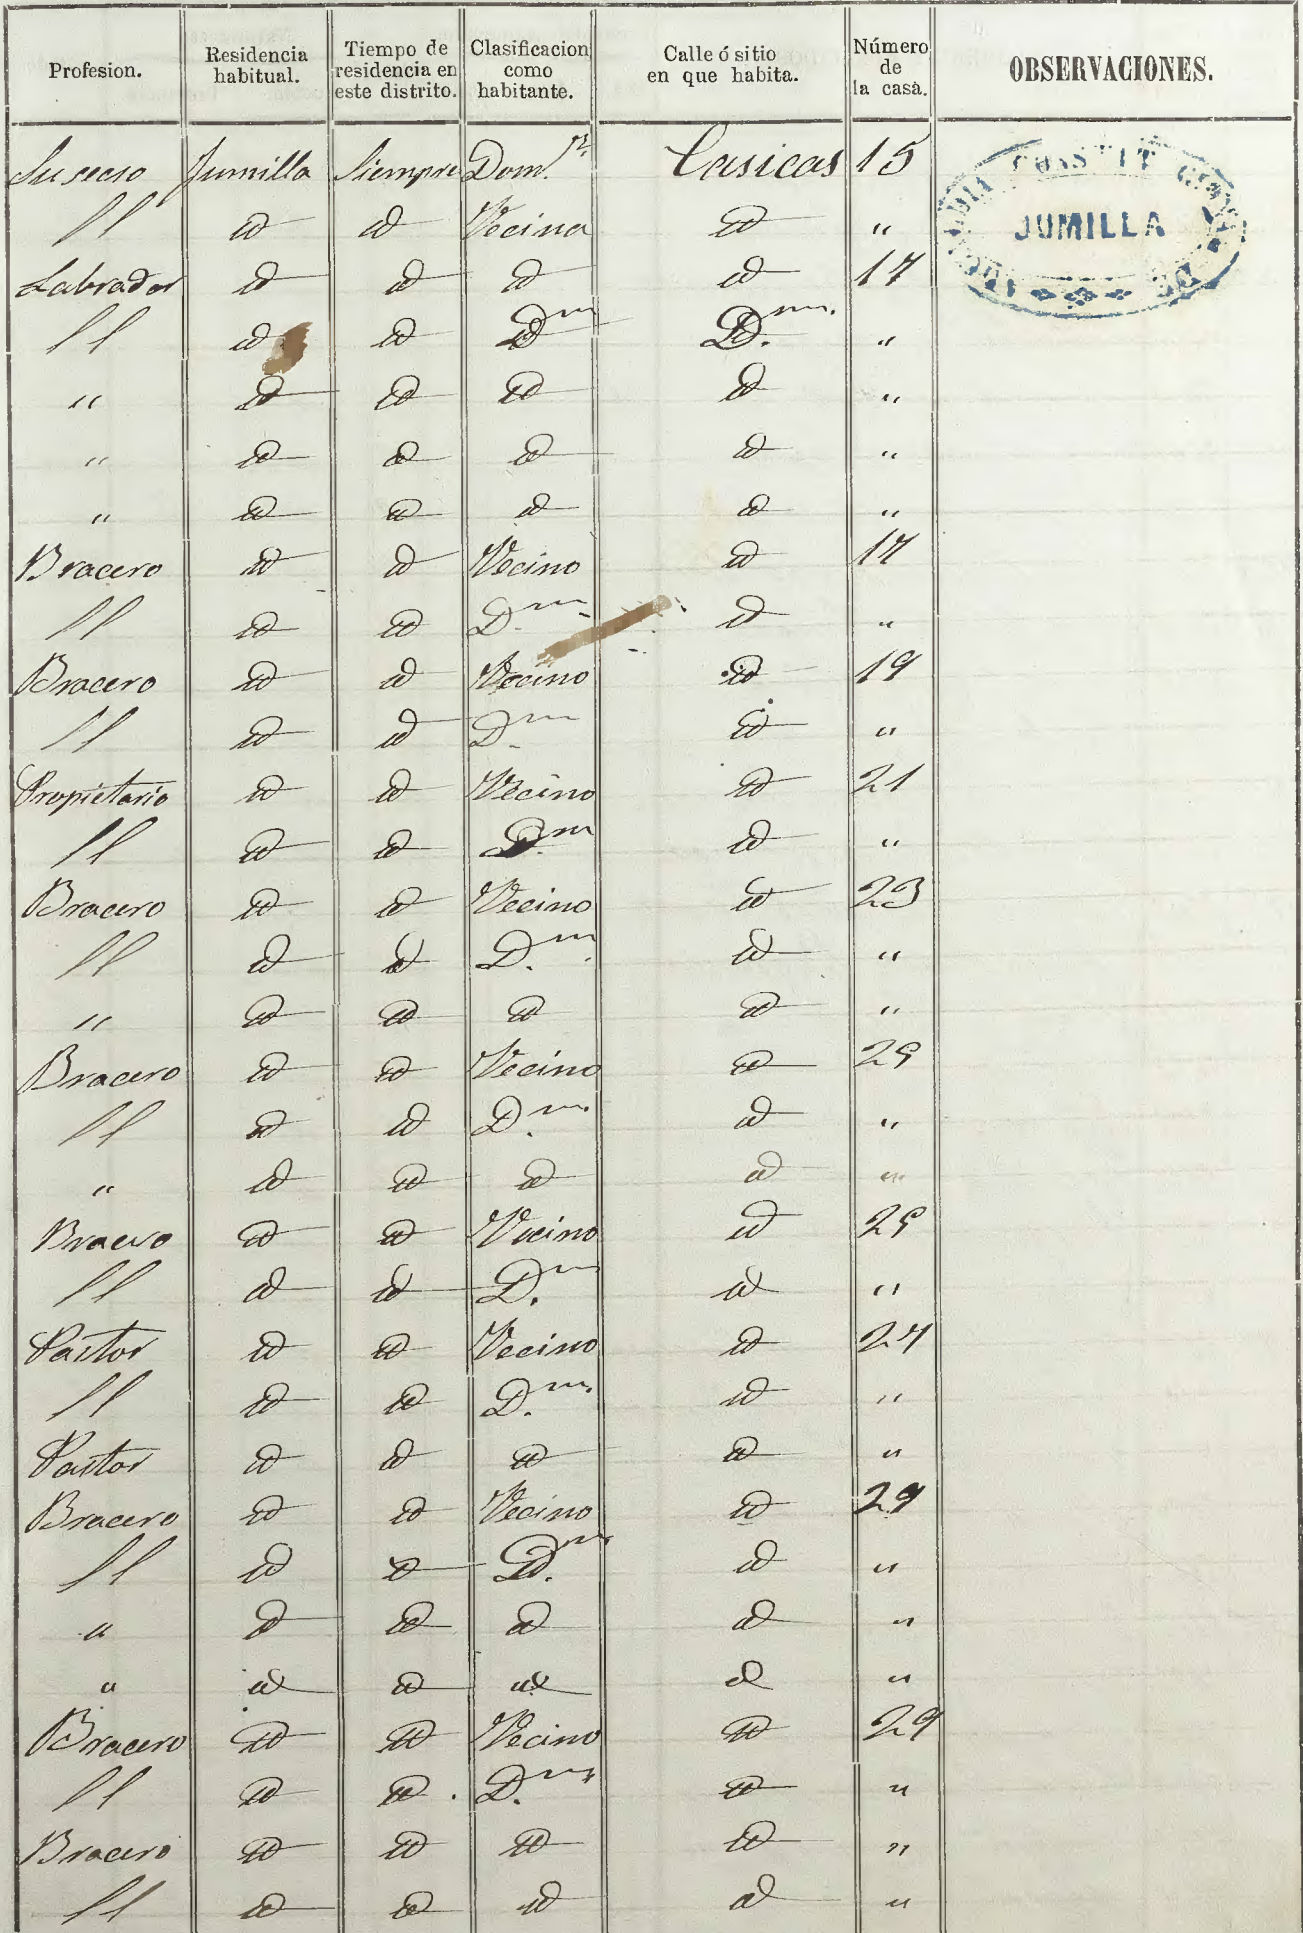 Profesion. Residencia habitual. Tiempo de residencia en este distrito. Clasificacion como habitante. Calle ó sitio en que habita. Número de la casa. OBSERVACIONES.
Jumilla Siempre Dom.n Casicas 15
" id id Vecina id "
Labrador id id id id 17
" id id Dm Dm. "
" id id id id "
" id id id id "
" id id id id "
Bracero id id Vecino id 17
" id id D.m id "
Bracero id id Vecino id 19
" id id D.m id "
Propietario id id Vecino id 21
" id id D.m id "
Bracero id id Vecino id 23
" id id D.m id "
" id id id id "
Bracero id id Vecino id 25
" id id D.m id "
" id id id id "
Bracero id id Vecino id 25
" id id D.m id "
Pastor id id Vecino id 27
" id id D.m id "
Pastor id id id id "
Bracero id id Vecino id 29
" id id D.m id "
" id id id id "
" id id id id "
Bracero id id Vecino id 29
" id id D.m id "
Bracero id id id id "
" id id id id "
JUMILLA